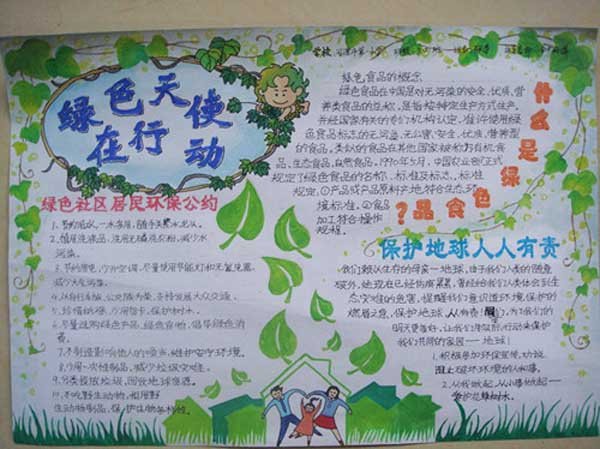 绿色天使
在行动
绿色社区居民环保公约
1. 节约用水,一水多用,随手关紧水龙头。
2. 慎用洗涤品,选用无磷洗衣粉,减少水
污染。
3. 节约用电,少用空调,尽量使用节能灯和无氟冰箱,
减少大气污染。
4. 以自行车
公交
5. 珍惜纸张
保护树木。
6. 尽量选购绿色产品,绿色食物,倡导绿色消
费。
7. 不制造影响他人的噪声,维护安宁环境。
8. 少用一次性制品,减少垃圾灾难。
9. 分类投放垃圾,回收
10. 不吃野生动物,拒用野
生动物制品,保护生物多样性。
学校
绿色食品的概念
绿色食品在中国是对无污染的安全、优质、营
养类食品的总称,是指按特定生产方式生产,
并经国家有关的专门机构认定,准许使用绿
色食品标志的无污染、无公害、安全、优质、营养型
的食品。类似的食品在其他国家被称为有机食
品,生态食品,自然食品。1990年5月,中国农业部正式
规定了绿色食品的名称、标准及标志。标准
规定:①产品或产品原料产地符合生态环
境标准,②食品
加工符合操作
规程。
什么是绿色食品?
保护地球人人有责
我们赖以生存的母亲—地球,由于我们人类的随意
破坏,她现在已经伤痕累累,
生态
的危害,提醒我们意识道环境保护的
燃眉之急,保护地球,人人有责
,为了我们的
明天更美好,让我们用行动来保护
我们共同的家园——地球!
1. 积极参加环保宣传,劝说
阻止破坏环境的人和事。
2. 从我做起,从小事做起——
爱护花草树木。